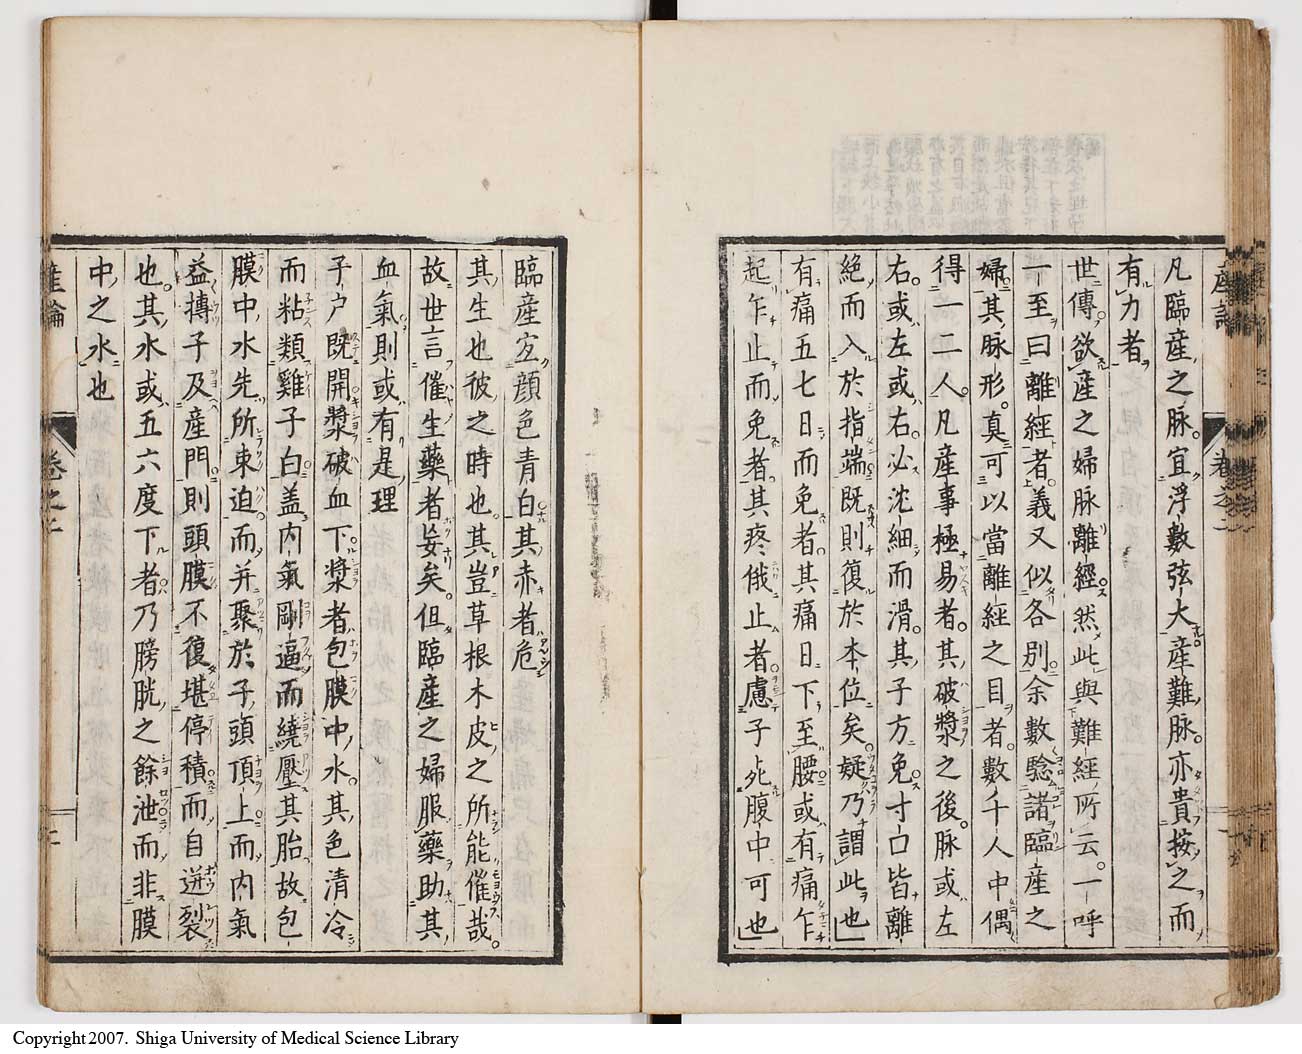 產論
卷之二
凡臨產之脉宜浮數弦大產難脉亦貴按之而
有力者
世傳欲產之婦脉離經然此與難經所云一呼
一至曰離經者義又似各別余數驗諸臨產之
婦其脉形真可以當離經之目者數千人中偶
得一二人凡產事極易者其破漿之後脉或左
右或左或右必沈細而滑其子方免寸口皆離
絶而入於指端既則復於本位矣疑乃謂此也
有痛五七日而免者其痛日下至腰或有痛乍
起乍止而免者其疼俄止者慮子死腹中可也
臨產宜顔色青白其赤者危
其生也彼之時也其豈草根木皮之所能催哉
故世言催生藥者妄矣但臨產之婦服藥助其
血氣則或有是理
子户既開漿破血下漿者包膜中水其色清冷
而粘類雞子白盖内氣剛逼而繞壓其胎故包
膜中水先所束迫而并聚於子頭頂上而内氣
益搏子及產門則頭膜不復堪停積而自迸裂
也其水或五六度下者乃膀胱之餘泄而非膜
中之水也
產論
卷之二
Copyright 2007. Shiga University of Medical Science Library